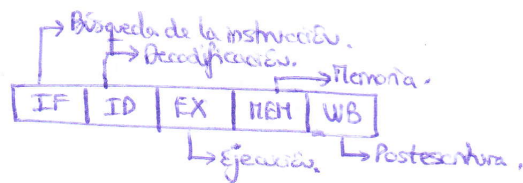 Búsqueda de la instrucción.
Decodificación.
Memoria.
IF ID EX MEM WB
Ejecución.
Postescritura.